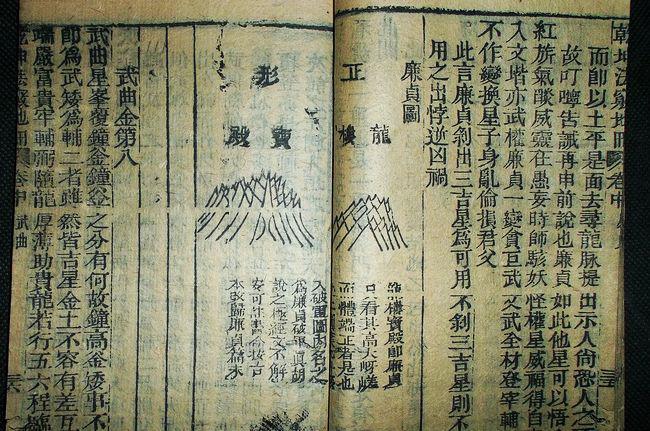 乾坤法竅地冊 卷中
而即以土平是面去尋龍脉提出示人尚恐人之
故叮嚀告誡再申前說也廉貞如此他星可以悟
紅旗氣燄威靈在愚妄時師駭妖怪權星威福得自
入文塔亦武權廉貞一變貪巨武文武全材登宰輔
不作變換星子身亂倫損君父
此言廉貞剝出三吉星爲可用不剝三吉星則不
用之出悖逆凶禍
廉貞圖
正形
龍樓
寶殿
龍樓寶殿即廉貞
只看其高大嵯峨
而體端正者是也
入破軍圖內名之
爲廉貞破軍真胡
說之極經文不解
安可註書今按古
本改歸廉貞
武曲金第八
武曲星峯覆鐘釜鐘釜之分有何故鐘高釜矮事不
即爲武矮爲輔二者雖然皆吉星金土不容有差互
端嚴富貴牢輔弼隨龍厚薄助貴龍若行五六程
乾坤法竅地冊 卷中 武曲